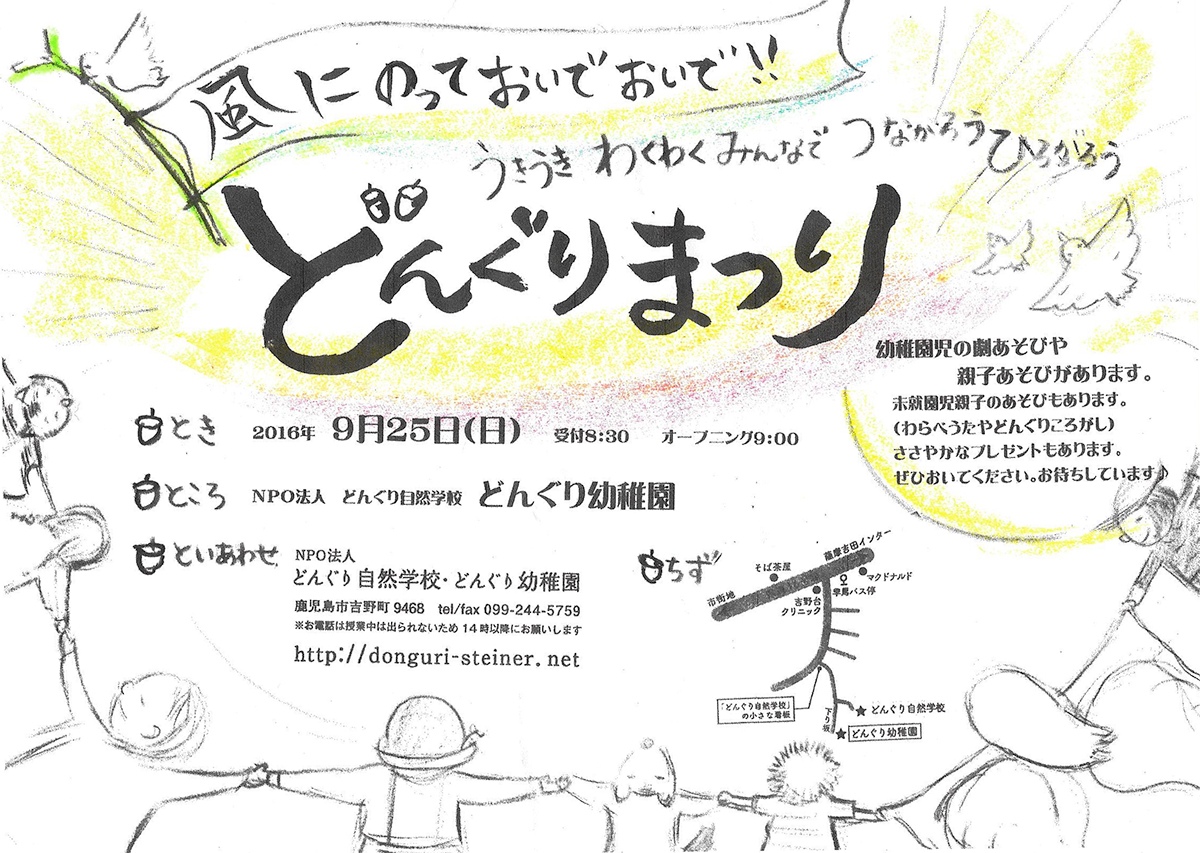 風にのっておいでおいで!!
うきうき わくわく みんなで つながろう ひろがろう
どんぐりまつり
幼稚園児の劇あそびや
親子あそびがあります。
未就園児親子のあそびもあります。
(わらべうたやどんぐりころがし)
ささやかなプレゼントもあります。
ぜひおいでください。お待ちしています♪
とき 2016年 9月25日(日) 受付8:30 オープニング9:00
ところ NPO法人 どんぐり自然学校 どんぐり幼稚園
といあわせ NPO法人
どんぐり自然学校・どんぐり幼稚園
鹿児島市吉野町9468 tel/fax 099-244-5759
※お電話は授業中は出られないため14時以降にお願いします
http://donguri-steiner.net
ちず
薩摩吉田インター
そば茶屋
マクドナルド
早馬バス停
市街地
吉野台
クリニック
「どんぐり自然学校」
の小さな看板
下り坂
★どんぐり自然学校
★どんぐり幼稚園